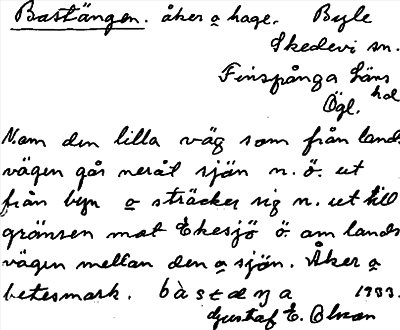 Bastängen. åker o hage. Byle
Skedevi sn.
Finspånga läns hd
Ögl.
N. om den lilla väg som från lands-
vägen går neråt sjön n. ö. ut
från byn o sträcker sig n. ut till
gränsen mot Ekesjö ö. om lands
vägen mellan den o sjön. Åker o
betesmark. bàstæŋa 1933.
Gustaf E. Olson